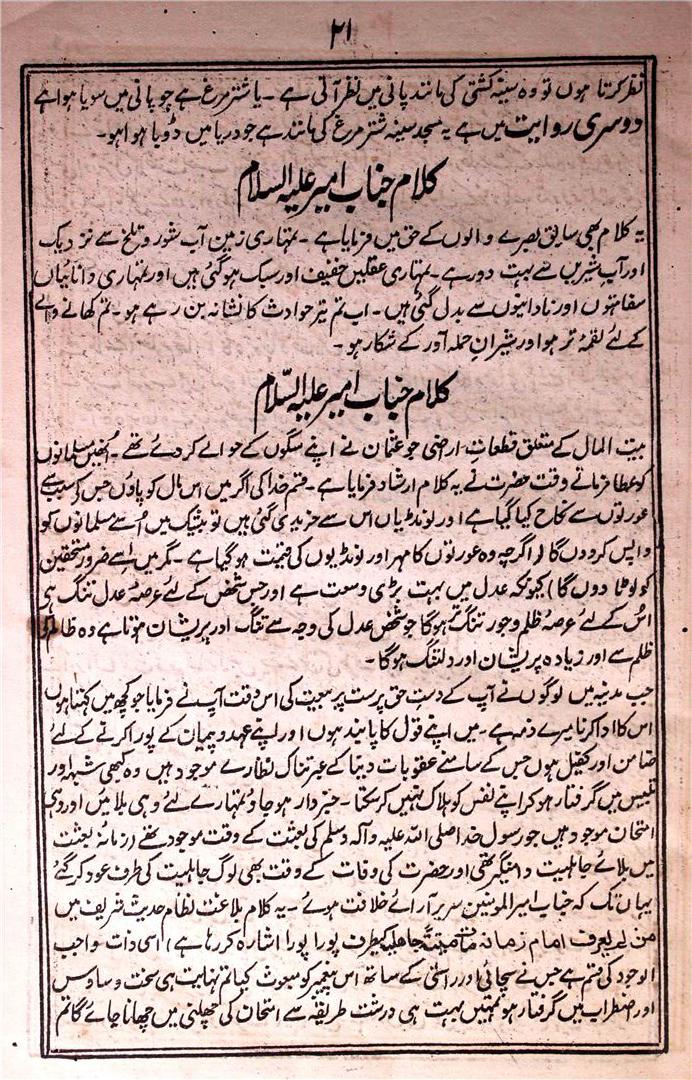 ۲۱
نظر کرتا ہوں تو وہ سینہ کشتی کی مانند پانی میں نظر آتی ہے ۔ یا شتر مرغ ہے جو پانی میں سویا ہوا ہے
دوسری روایت میں ہے یہ مسجد سینہ شتر مرغ کی مانند ہے جو دریا میں ڈوبا ہوا ہو۔
کلام جناب امیر علیہ السلام
یہ کلام بھی سابق بصرے والوں کے حق میں فرمایا ہے ۔ تمہاری زمین آب شور و تلخ سے نزدیک
اور آب شیریں سے بہت دور ہے ۔ تمہاری عقلیں خفیف اور سبک ہو گئی ہیں اور تمہاری دانائیاں
سفاہتوں اور نادانیوں سے بدل گئی ہیں ۔ اب تم تیر حوادث کا نشانہ بن رہے ہو ۔ تم کھانے والے
کے لئے لقمۂ تر ہو اور شیران حملہ آور کے شکار ہو ۔
کلام جناب امیر علیہ السّلام
بیت المال کے متعلق قطعات ارضی جو عثمان نے اپنے سگوں کے حوالے کر دئے تھے ۔ انھیں مسلمانوں
کو عطا فرماتے وقت حضرت نے یہ کلام ارشاد فرمایا ہے ۔ قسم خدا کی اگر میں اس مال کو پاؤں جس کے سبب سے
عورتوں سے نکاح کیا گیا ہے اور لونڈیاں اس سے خریدی گئی ہیں تو بیشک میں اُسے مسلمانوں کو
واپس کر دوں گا (اگرچہ وہ عورتوں کا مہر اور لونڈیوں کی قیمت ہو گیا ہے ۔ مگر میں اسے ضرور مستحقین
کو لوٹا دوں گا) کیونکہ عدل میں بہت بڑی وسعت ہے اور جس شخص کے لئے عرصۂ عدل تنگ ہی
اُس کے لئے عرصۂ ظلم و جور تنگ تر ہوگا جو شخص عدل کی وجہ سے تنگ اور پریشان ہوتا ہے وہ ظالم کے
ظلم سے اور زیادہ پریشان اور دلتنگ ہوگا ۔
جب مدینہ میں لوگوں نے آپ کے دست حق پرست پر بیعت کی اس وقت آپ نے فرمایا جو کچھ میں کہتا ہوں
اس کا ادا کرنا میرے ذمہ ہے ۔ میں اپنے قول کا پابند ہوں اور اپنے عہد و پیمان کے پورا کرنے کے لئے
ضامن اور کفیل ہوں جس کے سامنے عقوبات دنیا کے عبرتناک نظارے موجود ہیں وہ کبھی شبہ اور
تلبیس میں گرفتار ہو کر اپنے نفس کو ہلاک نہیں کر سکتا ۔ خبردار ہو جاؤ تمہارے لئے وہی بلائیں اور وہی
امتحان موجود ہیں جو رسول خدا صلی اللہ علیہ و آلہ وسلم کی بعثت کے وقت موجود تھے (زمانۂ بعثت
میں بلائے جاہلیت دامنگیر تھی اور حضرت کی وفات کے وقت بھی لوگ جاہلیت کی طرف عود کر گئے
یہاں تک کہ جناب امیر المومنین سریر آرائے خلافت ہوئے ۔ یہ کلام بلاغت نظام حدیث شریف میں
من لم یعرف امام زمانہ مات میتۃ جاھلیۃ کیطرف پورا پورا اشارہ کر رہا ہے) اسی ذات واجب
الوجود کی قسم ہے جس نے سچائی اور راستی کے ساتھ اس پیغمبر کو مبعوث کیا تم نہایت ہی سخت وساوس
اور اضطراب میں گرفتار ہو تمہیں بہت ہی درشت طریقہ سے امتحان کی چھلنی میں چھانا جائے گا تم